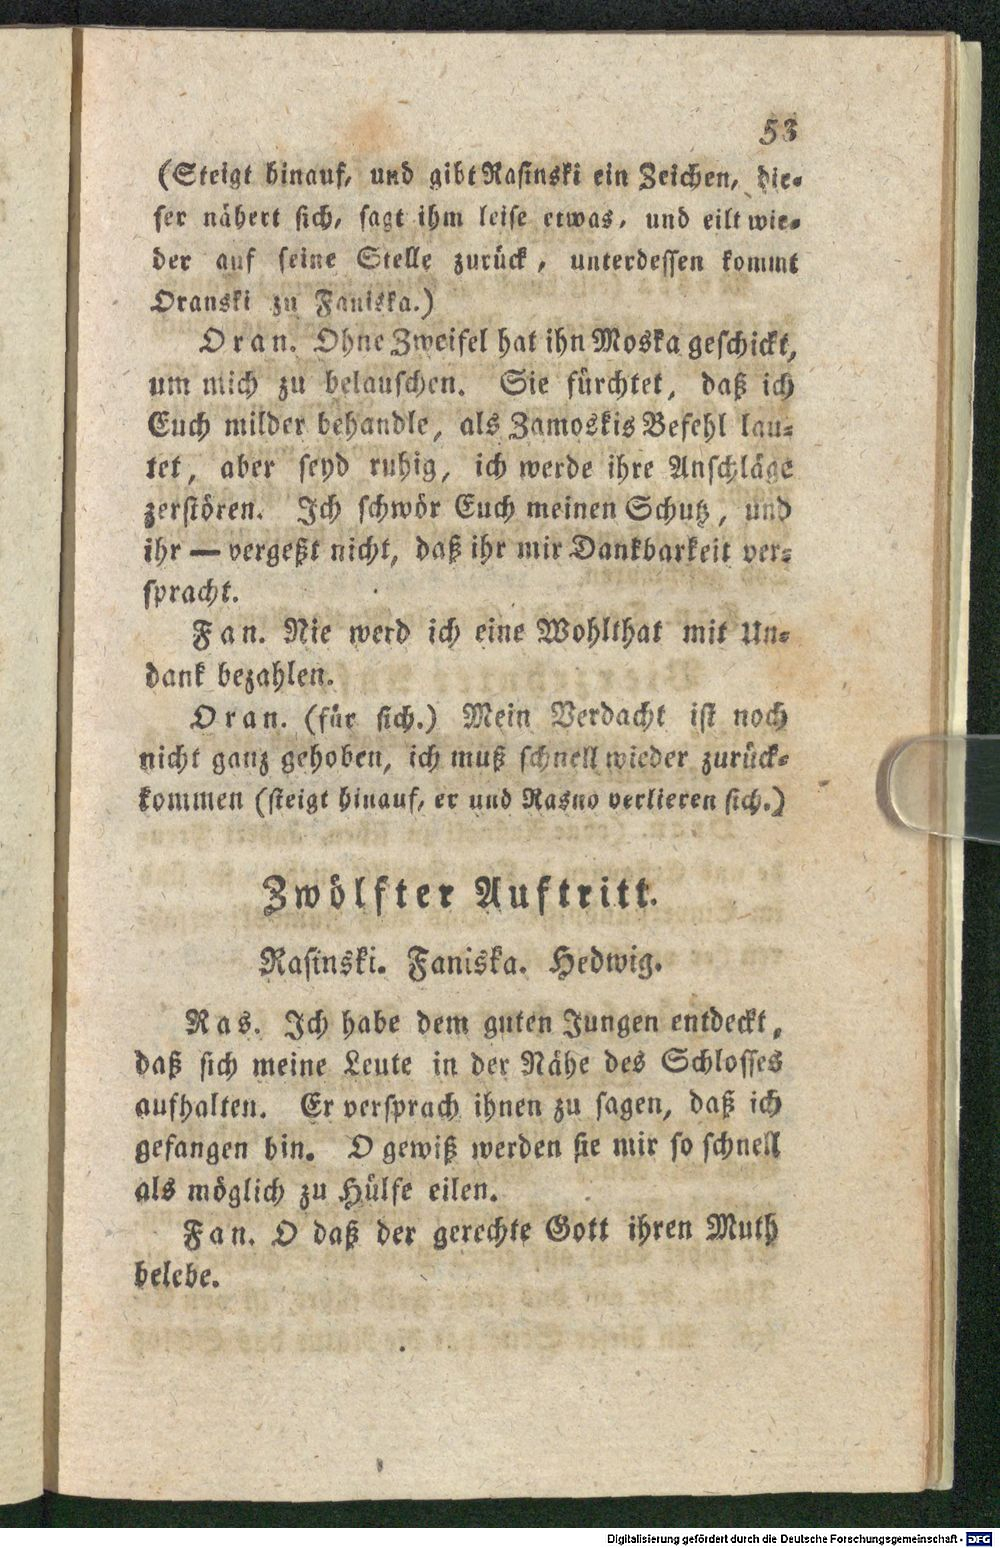 53
(Steigt hinauf, und gibt Rasinski ein Zeichen, die-
ser nähert sich, sagt ihm leise etwas, und eilt wie-
der auf seine Stelle zurück, unterdessen kommt
Oranski zu Faniska.)
Oran. Ohne Zweifel hat ihn Moska geschickt,
um mich zu belauschen. Sie fürchtet, daß ich
Euch milder behandle, als Zamoskis Befehl lau-
tet, aber seyd ruhig, ich werde ihre Anschläge
zerstören. Ich schwör Euch meinen Schutz, und
ihr — vergeßt nicht, daß ihr mir Dankbarkeit ver-
spracht.
Fan. Nie werd ich eine Wohlthat mit Un-
dank bezahlen.
Oran. (für sich.) Mein Verdacht ist noch
nicht ganz gehoben, ich muß schnell wieder zurück-
kommen (steigt hinauf, er und Rasno verlieren sich.)
Zwölfter Auftritt.
Rasinski. Faniska. Hedwig.
Ras. Ich habe dem guten Jungen entdeckt,
daß sich meine Leute in der Nähe des Schlosses
aufhalten. Er versprach ihnen zu sagen, daß ich
gefangen bin. O gewiß werden sie mir so schnell
als möglich zu Hülfe eilen.
Fan. O daß der gerechte Gott ihren Muth
belebe.
Digitalisierung gefördert durch die Deutsche Forschungsgemeinschaft - DFG